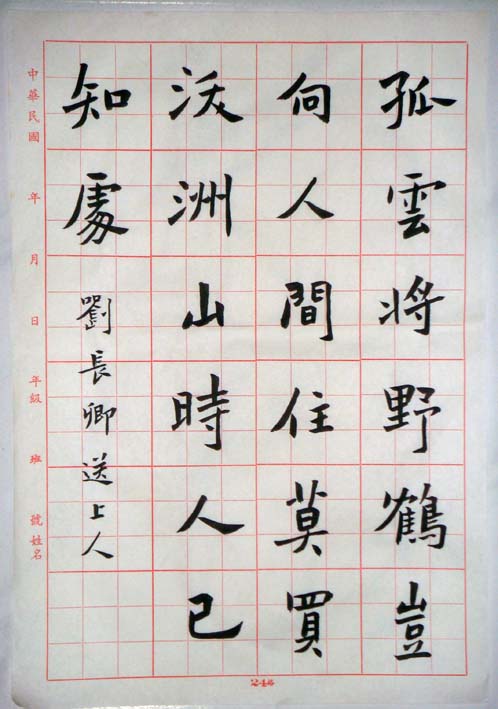 孤雲將野鶴豈
向人間住莫買
沃洲山時人已
知處
劉長卿送上人
中華民國 年 月 日 年級 班 號姓名
248